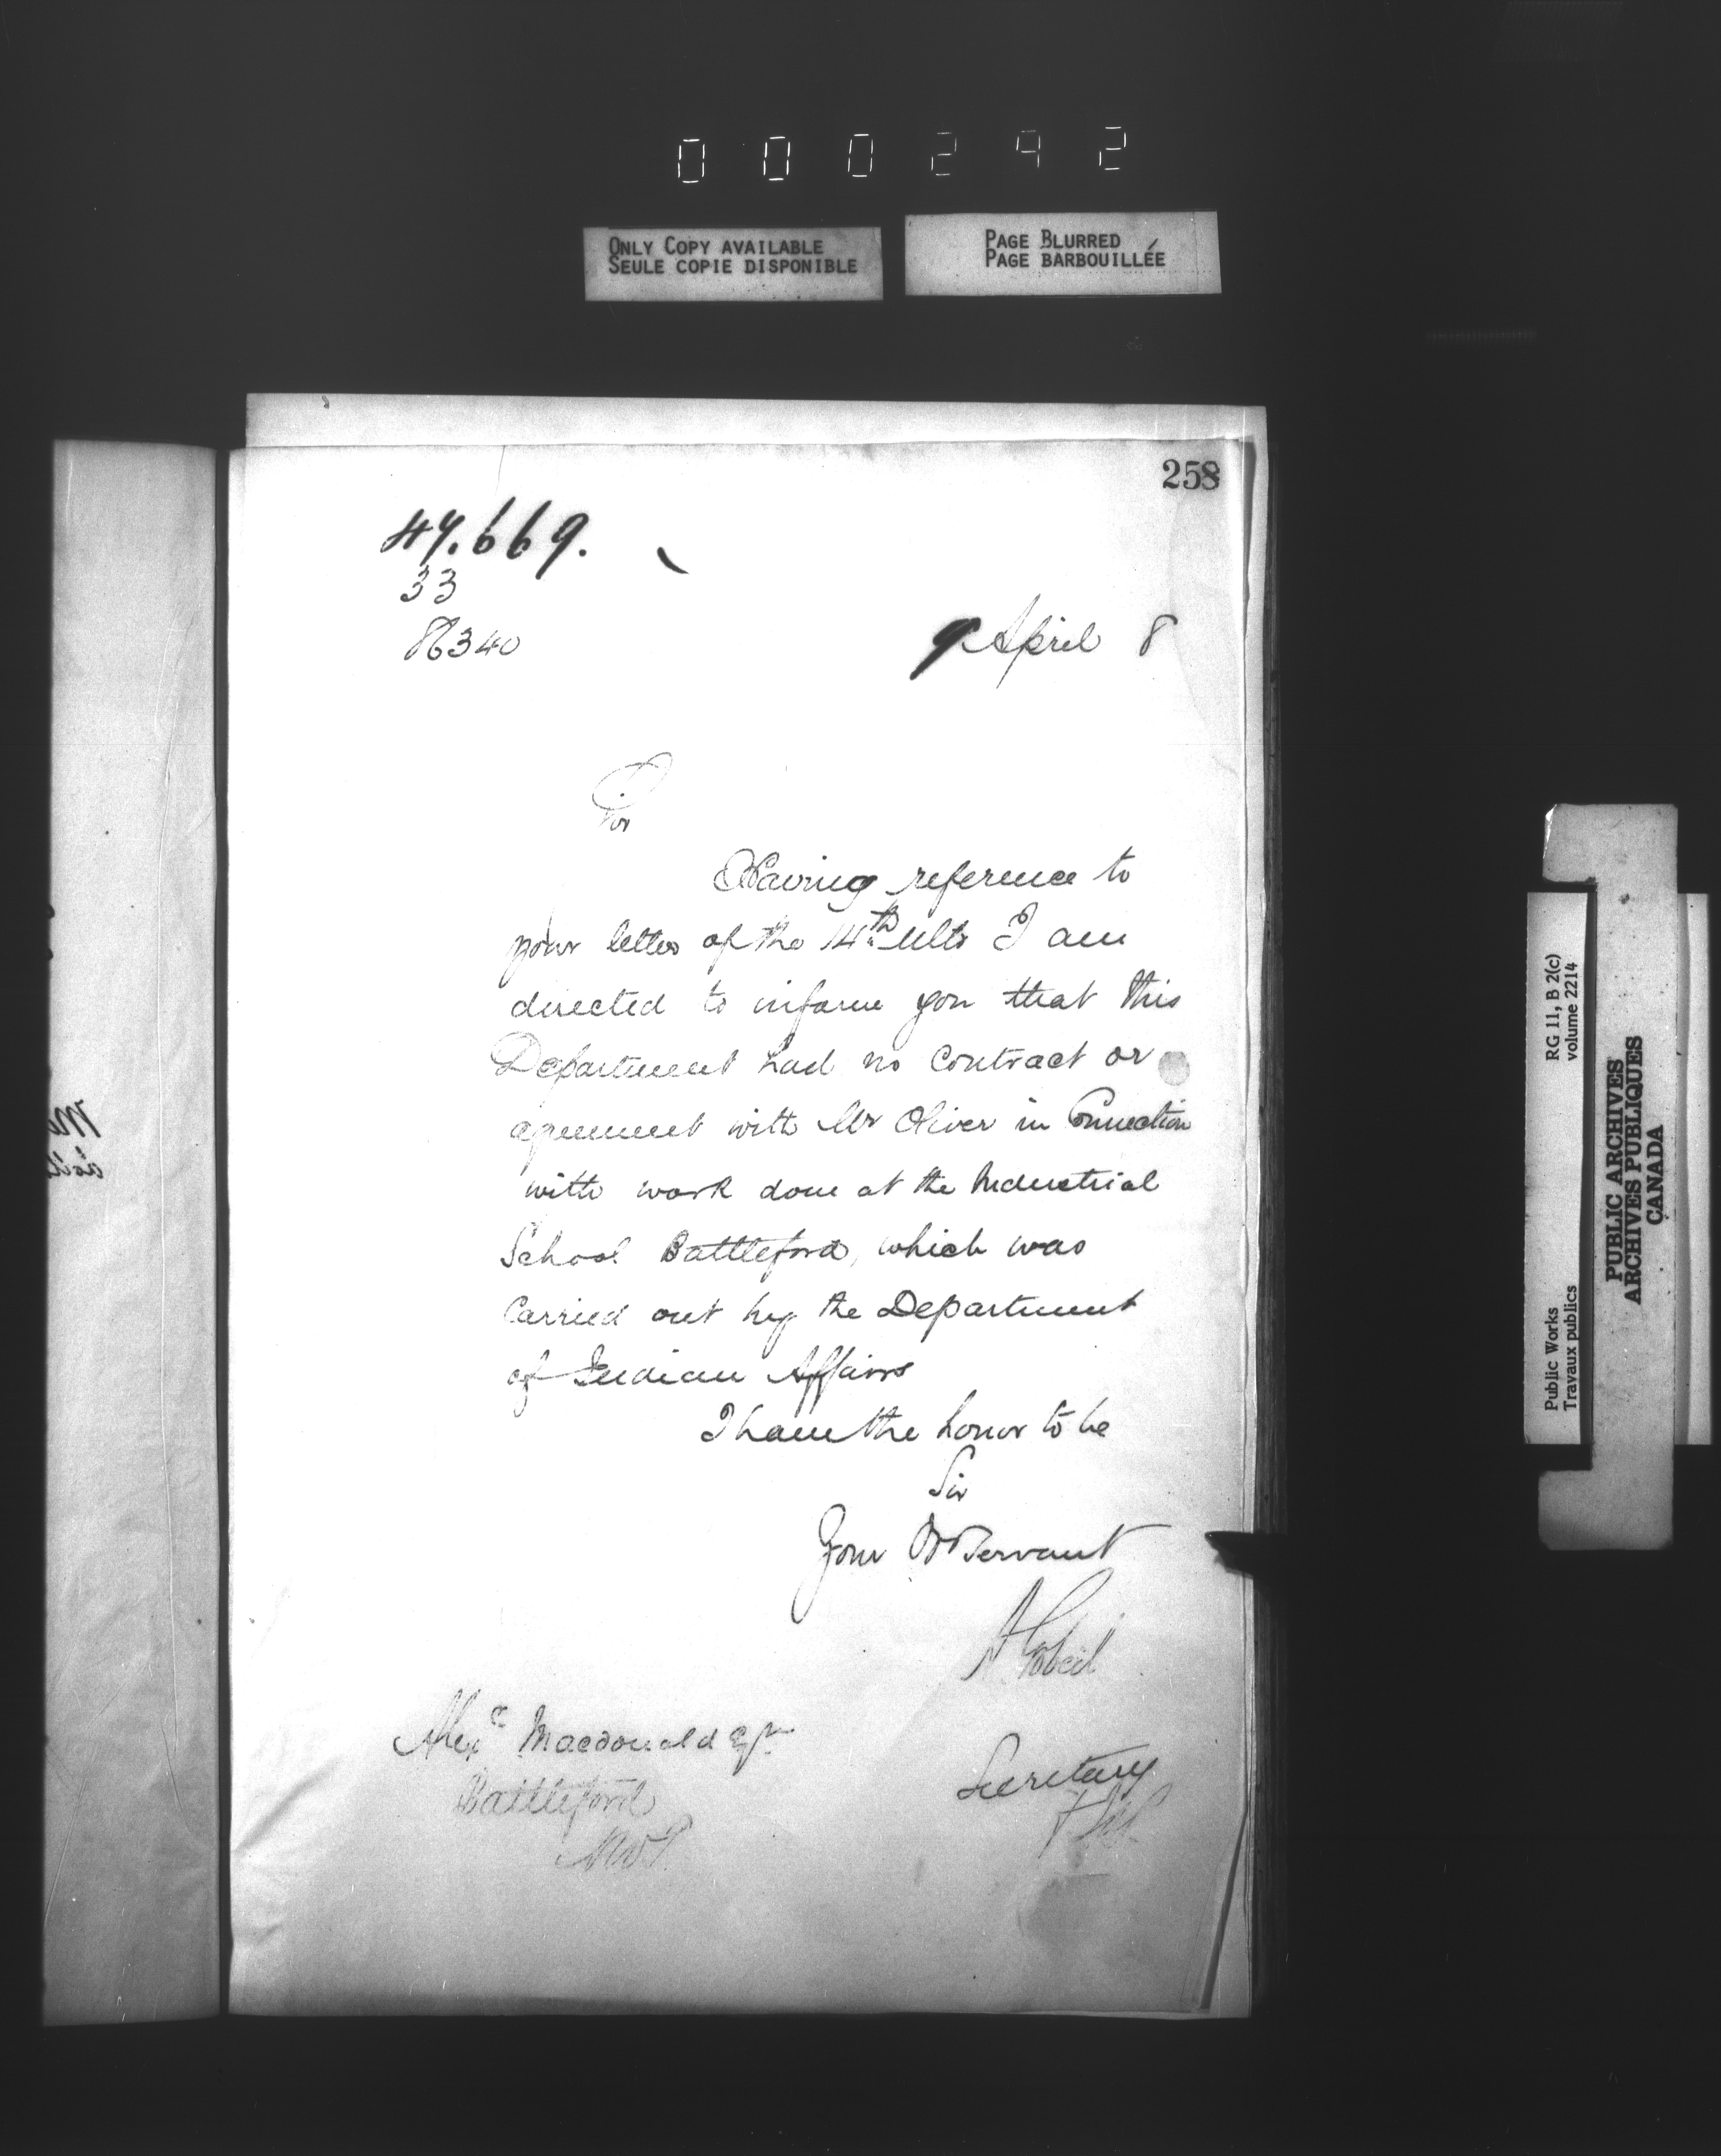 000292
ONLY COPY AVAILABLE
SEULE COPIE DISPONIBLE
PAGE BLURRED
PAGE BARBOUILLÉE
258
47.669.
33
86340
9 April 8
Sir
Having reference to
your letter of the 14th Ulto I am
directed to inform you that this
Department had no contract or
agreement with Mr Oliver in Connection
with work done at the Industrial
School Battleford, which was
Carried out by the Department
of Indian Affairs
I have the honor to be
Sir
Your Ob Servant
A Gobeil
Secretary
Alexr Macdonald Esqr
Battleford
NWT
RG 11, B 2(c)
volume 2214
Public Works
Travaux publics
PUBLIC ARCHIVES
ARCHIVES PUBLIQUES
CANADA